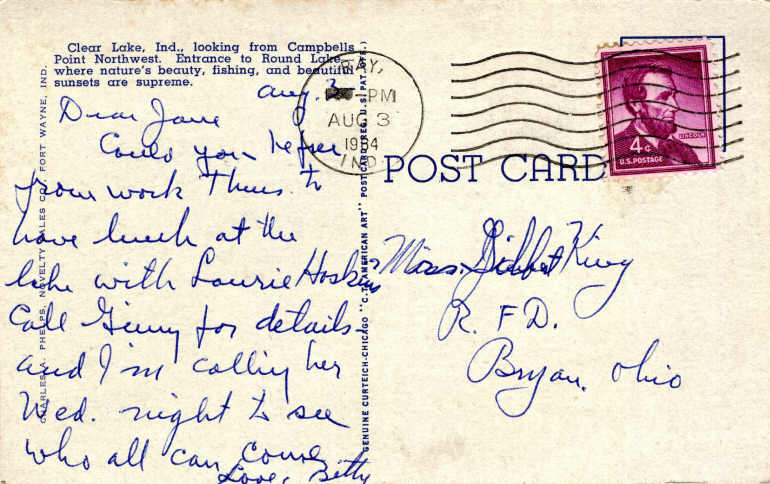 Clear Lake, Ind., looking from Campbells
Point Northwest. Entrance to Round Lake
where nature's beauty, fishing, and beautiful
sunsets are supreme.
Aug. 2
Dear Jane
Could you be free
from work Thurs. to
have lunch at the
lake with Laurie Hoskins
Call Ginny for details
and I'm calling her
Wed. night to see
who all can come
Love, Betty
CHARLES A. PHELPS, NOVELTY SALES CO., FORT WAYNE, IND.
GENUINE CURTEICH-CHICAGO "C.T. AMERICAN ART" POSTCARD (REG. U.S. PAT. OFF.)
RAY,
PM
AUG 3
1964
IND.
LINCOLN
4¢
U.S. POSTAGE
POST CARD
Mrs. Gilbert King
R. F D.
Bryan, Ohio